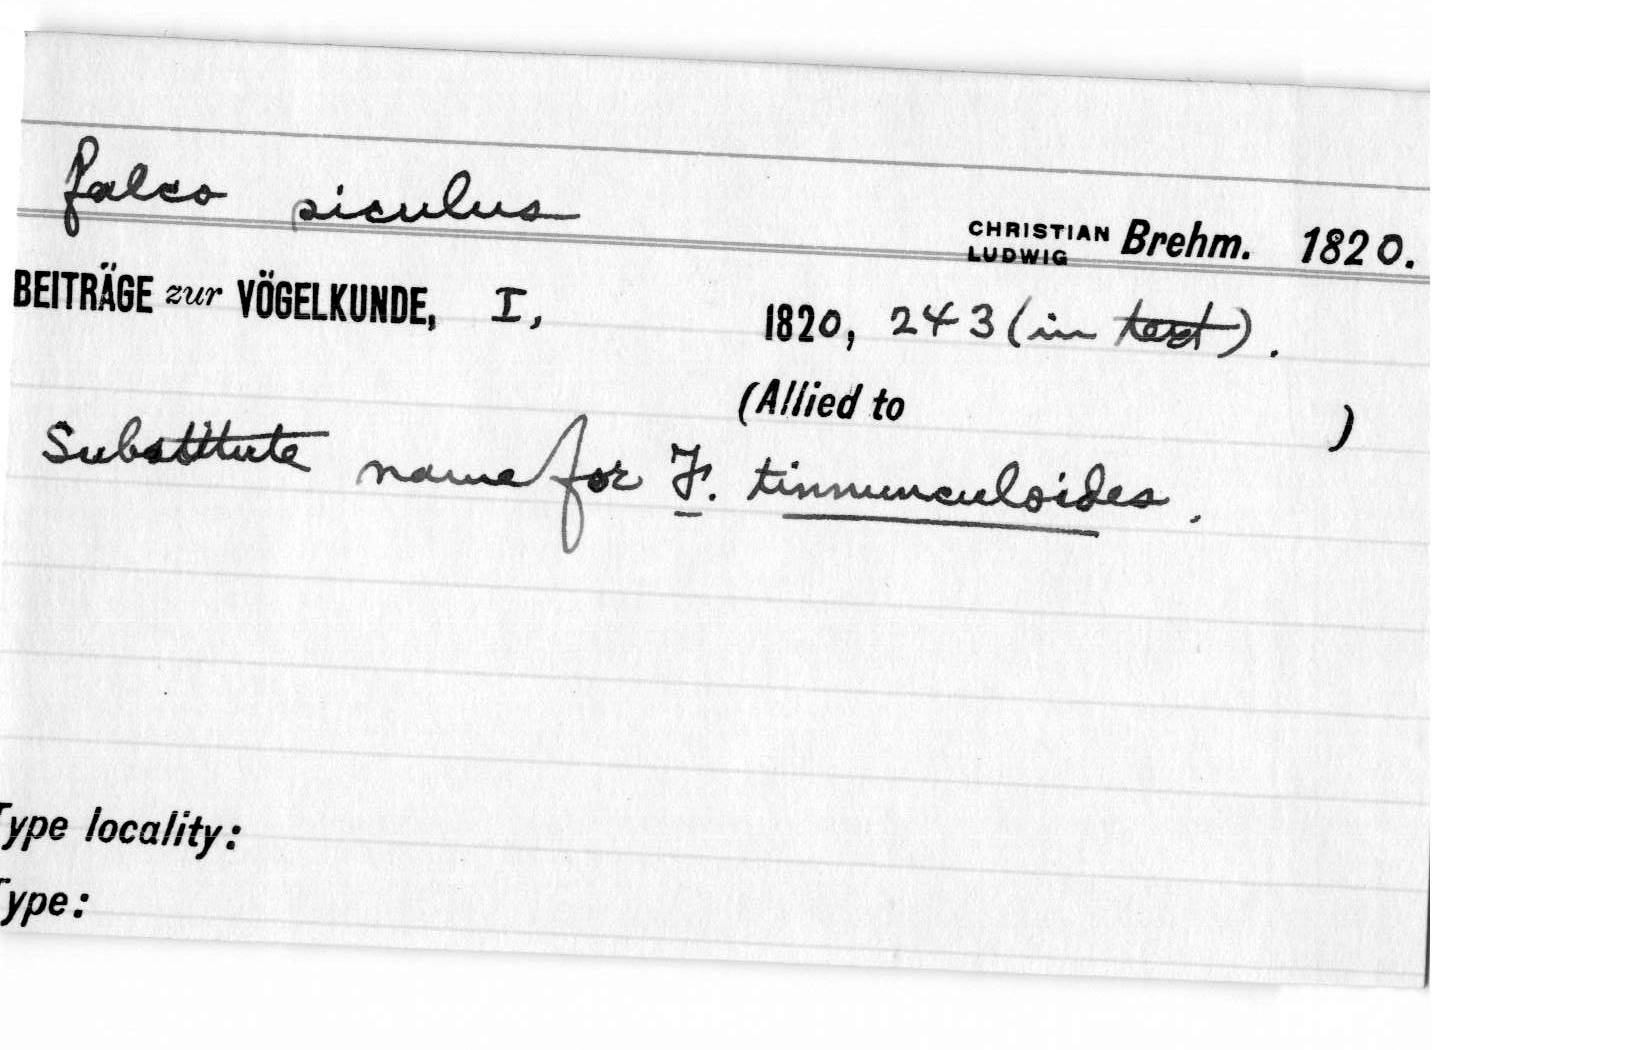 falco siculus
CHRISTIAN LUDWIG Brehm. 1820.
BEITRÄGE zur VÖGELKUNDE, I, 1820, 243 (in text).
(Allied to )
Substitute name for F. tinnunculoides.
Type locality:
Type: